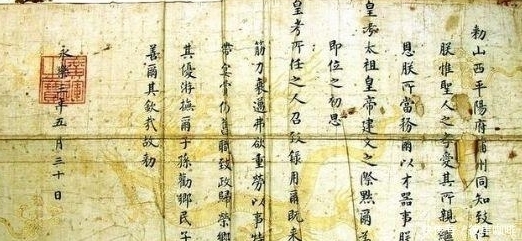 勅山西平陽府蒲州同知致仕
朕惟聖人之孝愛其所親
恩朕所當務爾以才器事朕
皇考太祖皇帝建文之際黙爾
即位之初思
皇考所任之人召致錄用爾既来
筋力衰邁弗欲重勞以事特
帶宴賞仍舊職致政歸榮鄉
其優游撫爾子孫勸鄉民子
善爾其欽哉故勅
永樂三年五月三十日